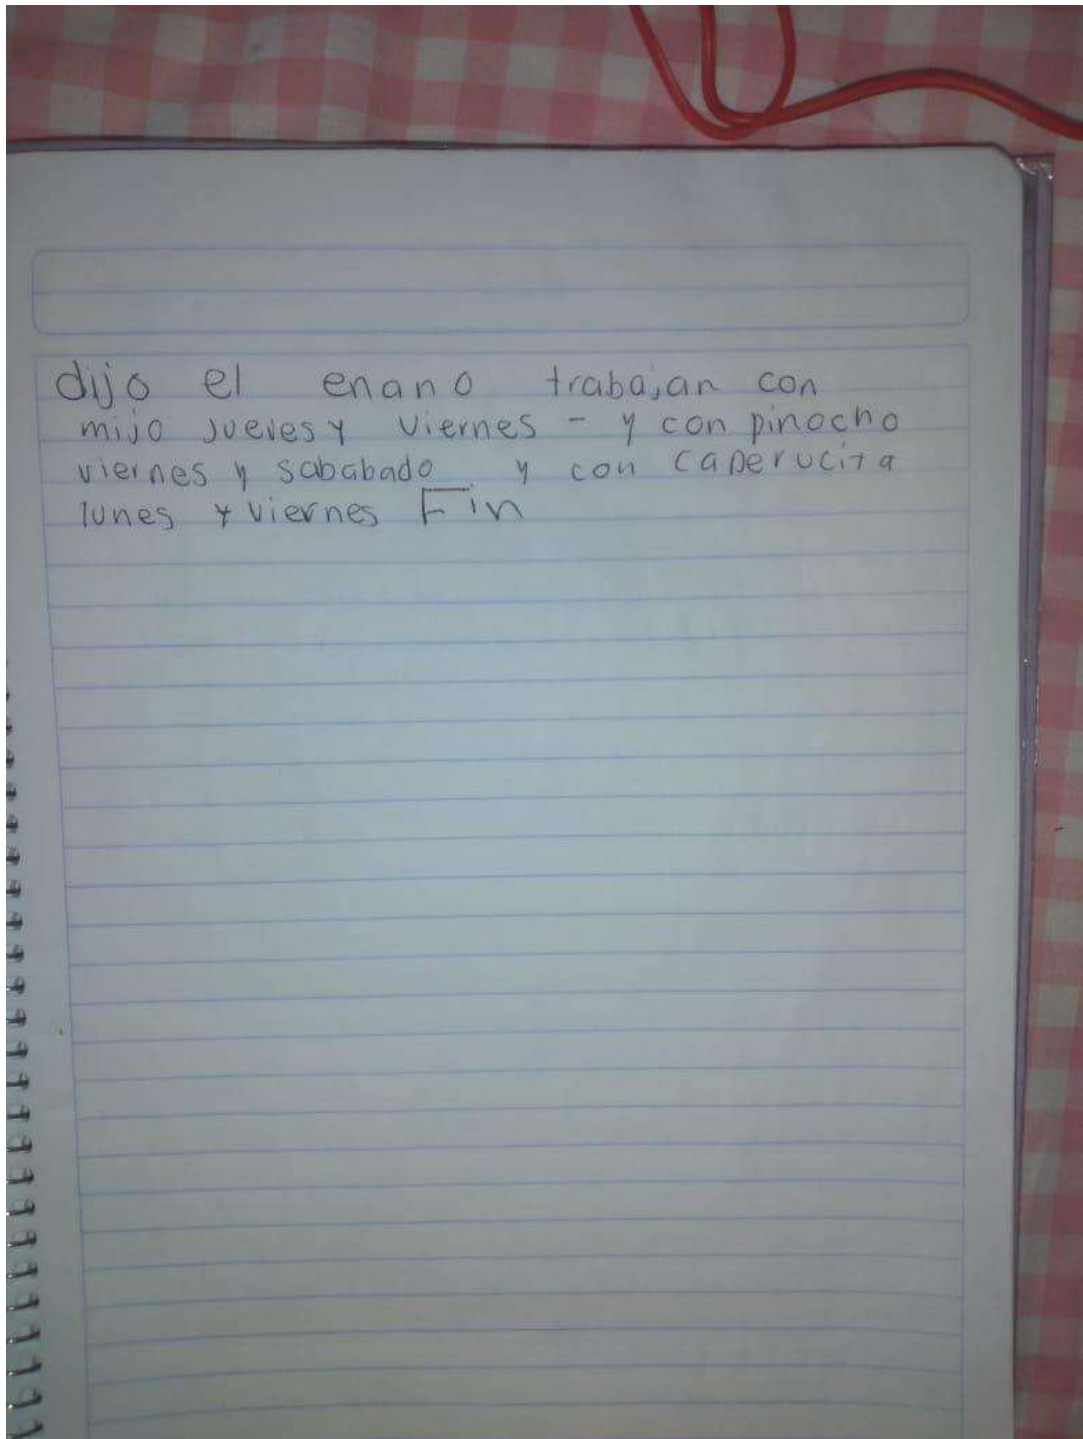 dijo el enano trabajan con
mijo jueves y viernes - y con pinocho
viernes y sababado y con caperucita
lunes y viernes Fin